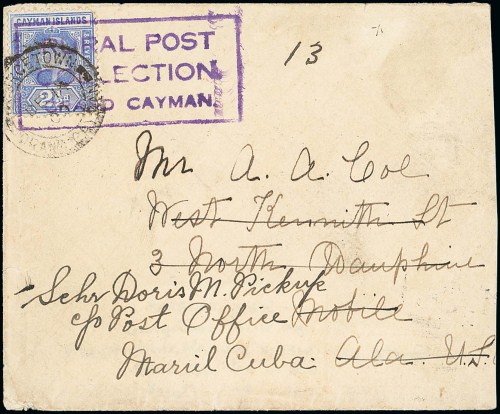 CAYMAN ISLANDS
AL POST
LECTION
D CAYMAN.
GEORGETOWN
2½d
13
Mr A. A. Coe
West Kennith St
3 North Dauphine
Schr Doris M. Pickup
c/o Post Office Mobile
Mariel Cuba. Ala. U.S.